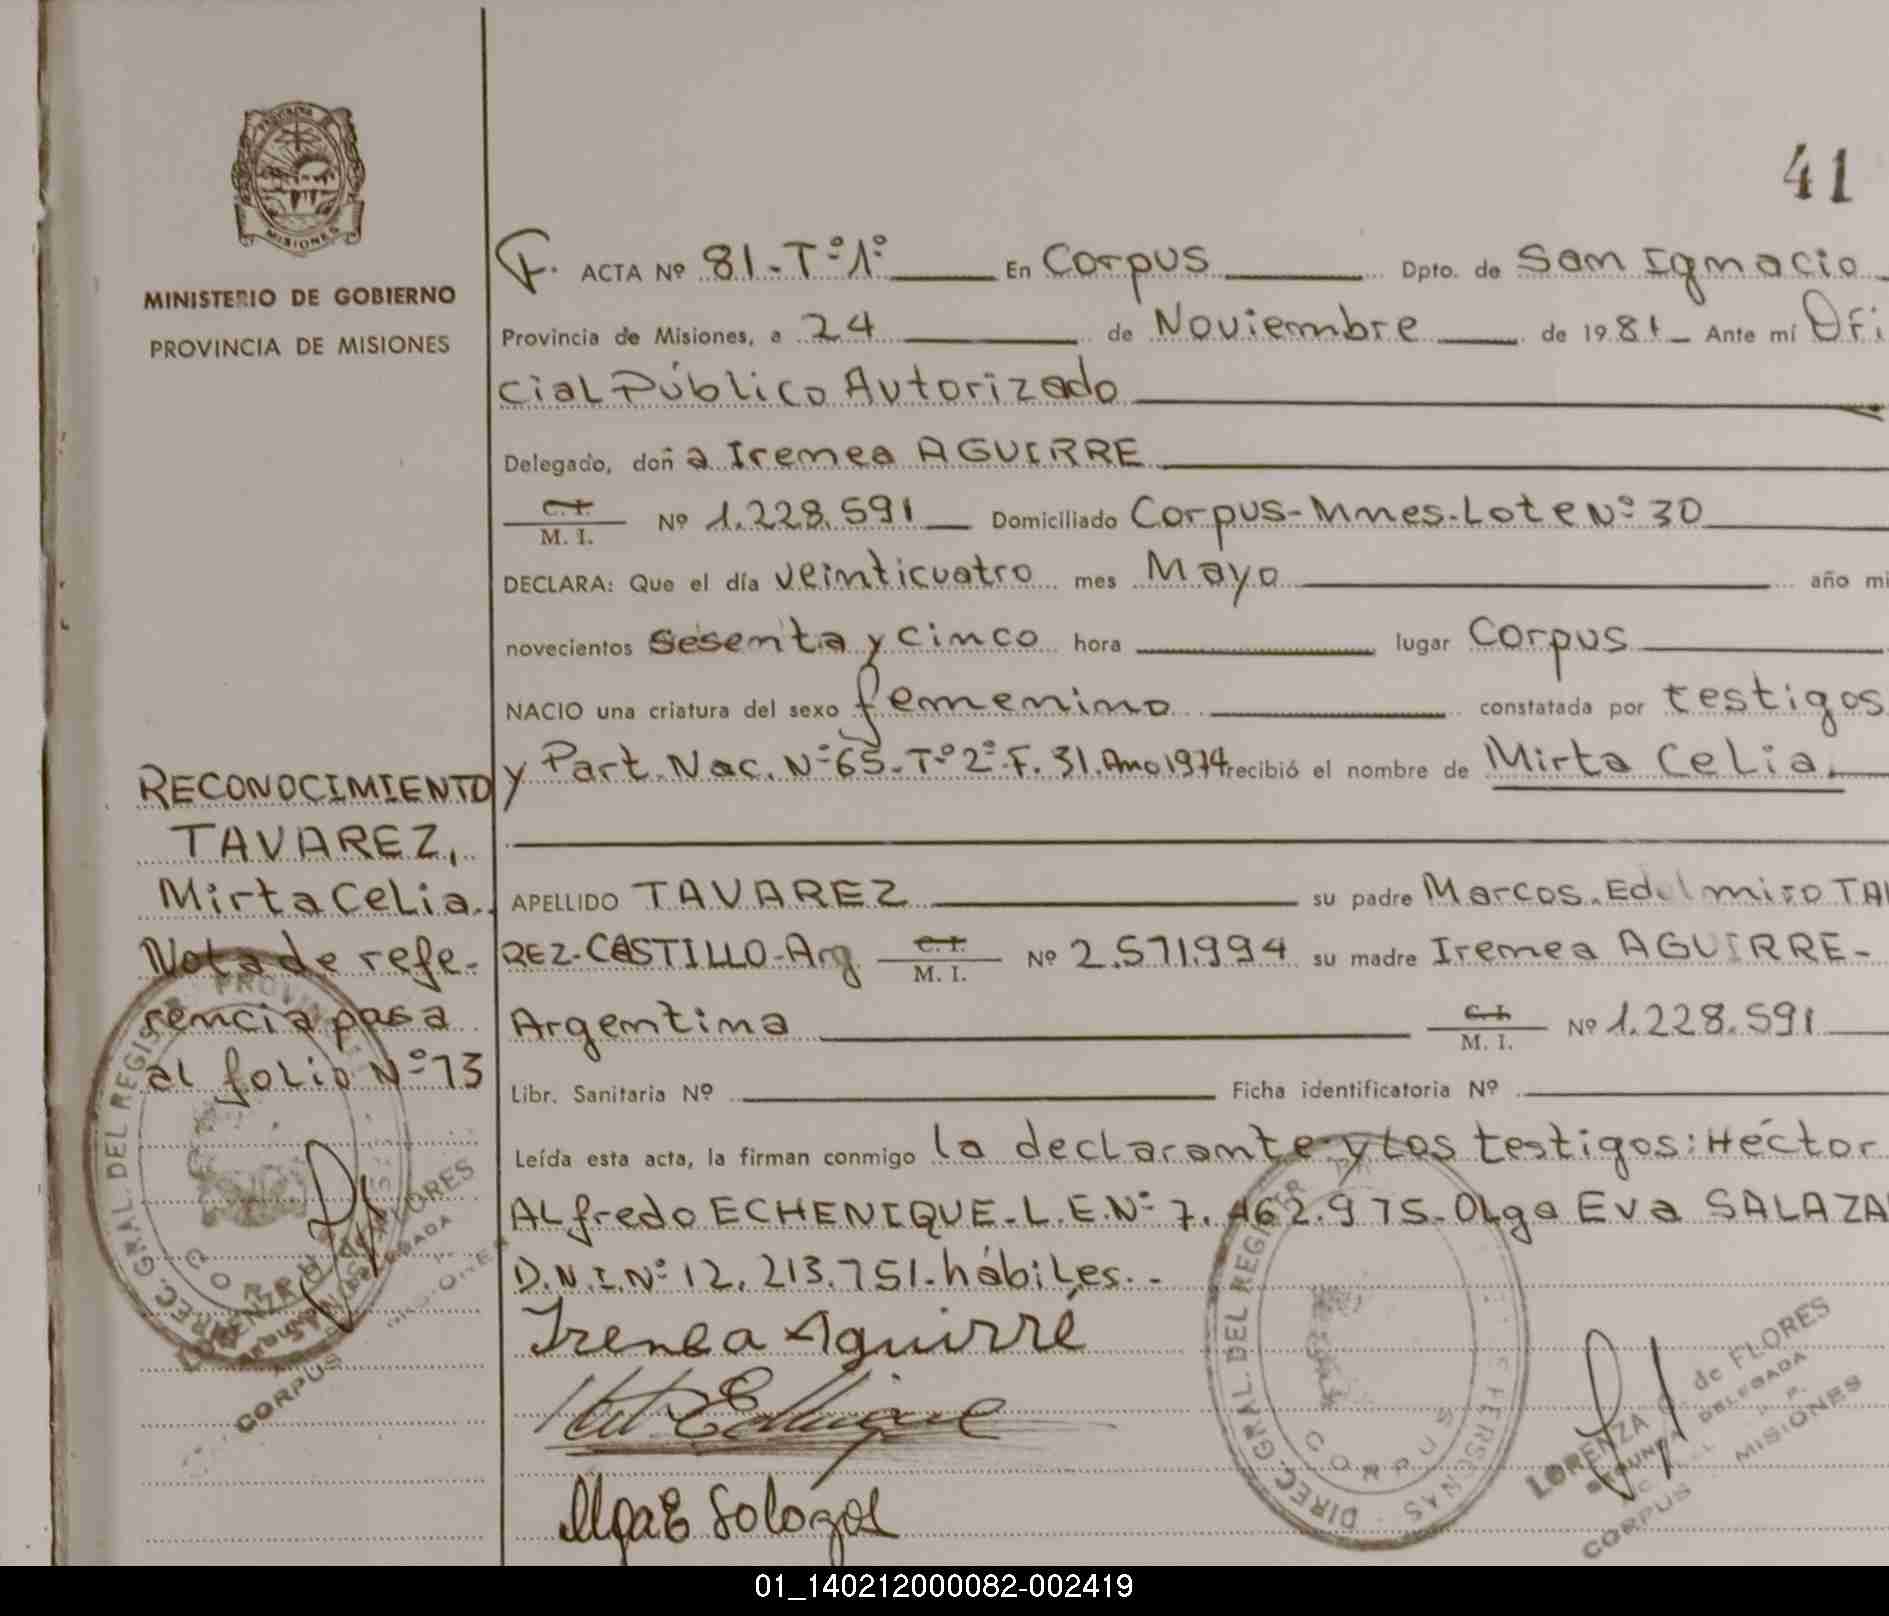 41
MISIONES
MINISTERIO DE GOBIERNO
PROVINCIA DE MISIONES
F. ACTA Nº 81-Tº1º En Corpus Dpto. de San Ignacio
Provincia de Misiones, a 24 de Noviembre de 1981 Ante mí Ofi
cial Público Autorizado
Delegado, doña Irenea AGUIRRE
C.I. M. I. Nº 1.228.591 Domiciliado Corpus-Mnes-Lote Nº 30
DECLARA: Que el día veinticuatro mes Mayo año mi
novecientos sesenta y cinco hora lugar Corpus
NACIO una criatura del sexo femenino constatada por testigos
y Part. Nac. Nº65-Tº2º-F. 31. Año 1974 recibió el nombre de Mirta Celia.
APELLIDO TAVAREZ su padre Marcos Edelmiro TA
REZ-CASTILLO-Arg C.I. M. I. Nº 2.571.994 su madre Irenea AGUIRRE-
Argentina C.I. M. I. Nº 1.228.591
Libr. Sanitaria Nº Ficha identificatoria Nº
Leída esta acta, la firman conmigo la declarante y los testigos: Héctor
Alfredo ECHENIQUE-L.E.Nº 7.462.975-Olga Eva SALAZA
D.N.I.Nº 12.213.751-hábiles.-
Irenea Aguirre
RECONOCIMIENTO
TAVAREZ,
Mirta Celia.
Nota de refe-
rencia pasa
al folio Nº 73
DIREC. GRAL. DEL REGIST
PROVIN
CORPUS
DIREC. GRAL. DEL REGI
CORPUS
LORENZA de FLORES
SEGUNDA DELEGADA
CORPUS MISIONES
01_140212000082-002419